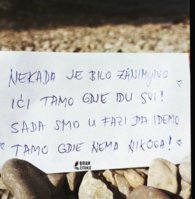 NEKADA JE BILO ZANIMLJIVO
IĆI TAMO GDJE IDU SVI!
SADA SMO U FAZI DA IDEMO
TAMO GDJE NEMA NIKOGA!
BIRAM
ČITANJE